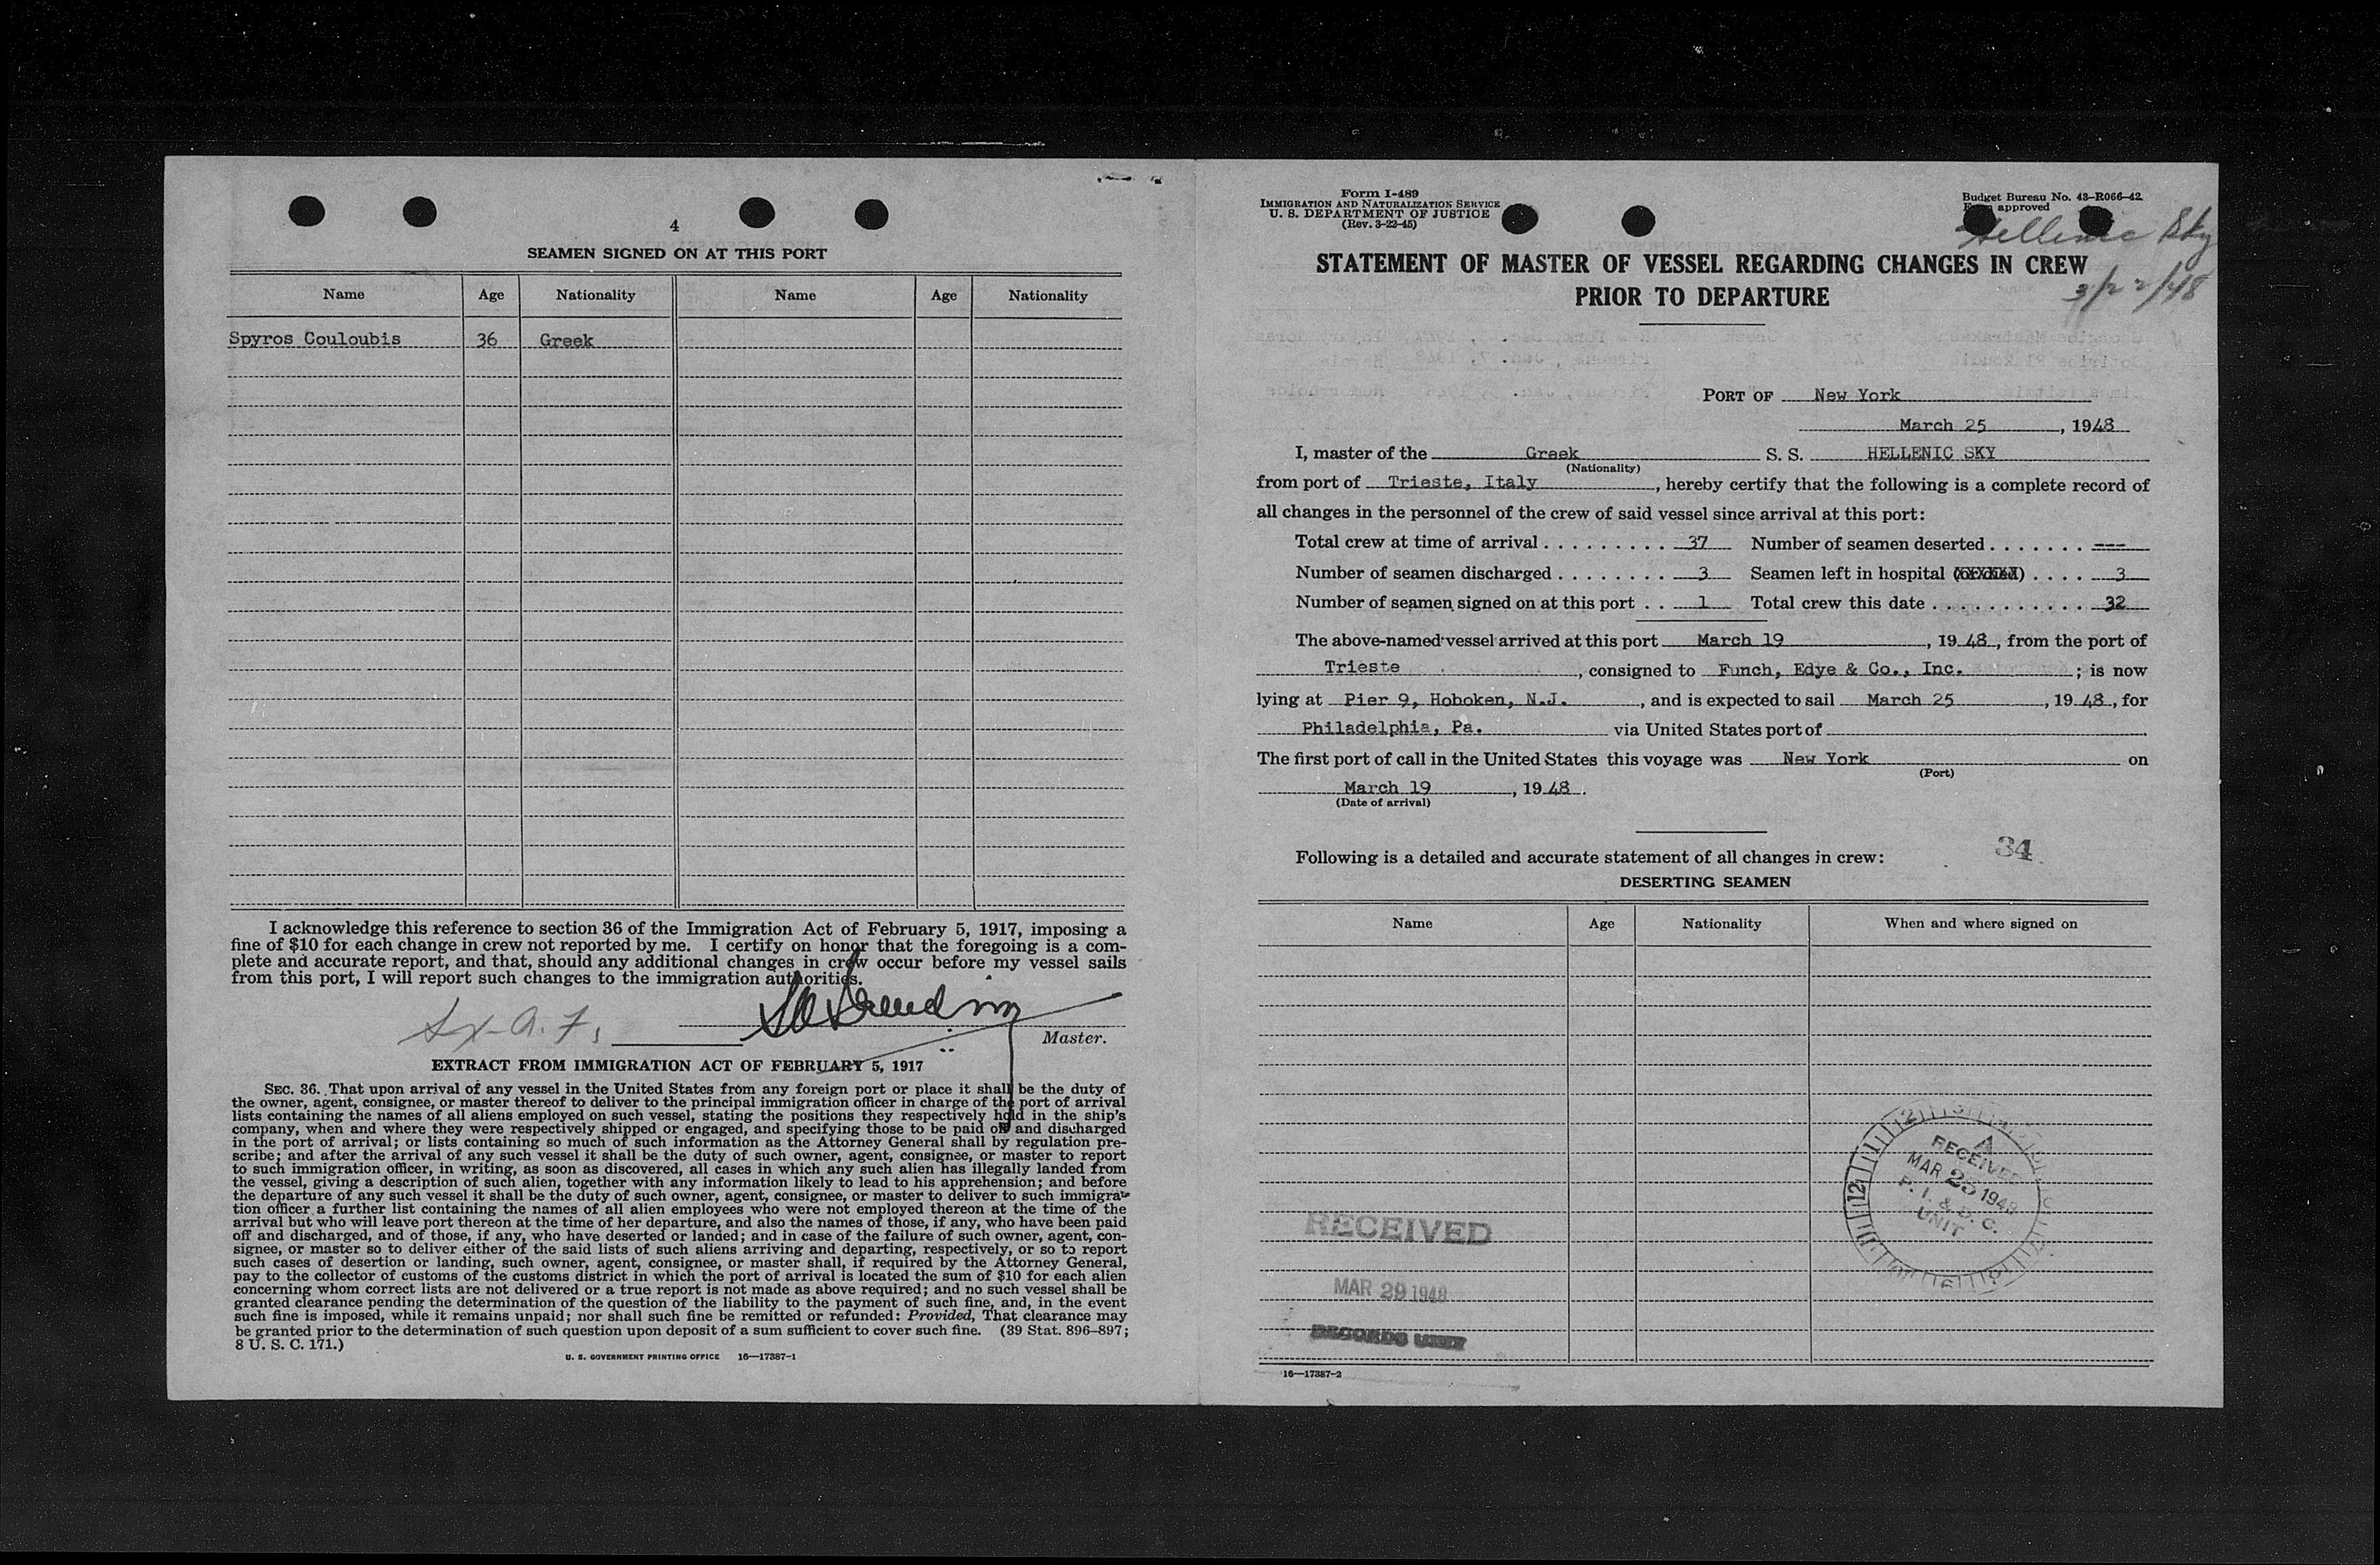 4
SEAMEN SIGNED ON AT THIS PORT
Name Age Nationality Name Age Nationality
Spyros Couloubis 36 Greek
I acknowledge this reference to section 36 of the Immigration Act of February 5, 1917, imposing a
fine of $10 for each change in crew not reported by me. I certify on honor that the foregoing is a com-
plete and accurate report, and that, should any additional changes in crew occur before my vessel sails
from this port, I will report such changes to the immigration authorities.
Master.
EXTRACT FROM IMMIGRATION ACT OF FEBRUARY 5, 1917
SEC. 36. That upon arrival of any vessel in the United States from any foreign port or place it shall be the duty of
the owner, agent, consignee, or master thereof to deliver to the principal immigration officer in charge of the port of arrival
lists containing the names of all aliens employed on such vessel, stating the positions they respectively hold in the ship's
company, when and where they were respectively shipped or engaged, and specifying those to be paid off and discharged
in the port of arrival; or lists containing so much of such information as the Attorney General shall by regulation pre-
scribe; and after the arrival of any such vessel it shall be the duty of such owner, agent, consignee, or master to report
to such immigration officer, in writing, as soon as discovered, all cases in which any such alien has illegally landed from
the vessel, giving a description of such alien, together with any information likely to lead to his apprehension; and before
the departure of any such vessel it shall be the duty of such owner, agent, consignee, or master to deliver to such immigra-
tion officer a further list containing the names of all alien employees who were not employed thereon at the time of the
arrival but who will leave port thereon at the time of her departure, and also the names of those, if any, who have been paid
off and discharged, and of those, if any, who have deserted or landed; and in case of the failure of such owner, agent, con-
signee, or master so to deliver either of the said lists of such aliens arriving and departing, respectively, or so to report
such cases of desertion or landing, such owner, agent, consignee, or master shall, if required by the Attorney General,
pay to the collector of customs of the customs district in which the port of arrival is located the sum of $10 for each alien
concerning whom correct lists are not delivered or a true report is not made as above required; and no such vessel shall be
granted clearance pending the determination of the question of the liability to the payment of such fine, and, in the event
such fine is imposed, while it remains unpaid; nor shall such fine be remitted or refunded: Provided, That clearance may
be granted prior to the determination of such question upon deposit of a sum sufficient to cover such fine. (39 Stat. 896–897;
8 U. S. C. 171.)
U. S. GOVERNMENT PRINTING OFFICE 16—17387-1
Form I-489
IMMIGRATION AND NATURALIZATION SERVICE
U. S. DEPARTMENT OF JUSTICE
(Rev. 3-22-45)
Budget Bureau No. 43-R066-42
Form approved
Hellenic Sky
3/22/48
STATEMENT OF MASTER OF VESSEL REGARDING CHANGES IN CREW
PRIOR TO DEPARTURE
PORT OF New York
March 25, 1948
I, master of the Greek S. S. HELLENIC SKY
(Nationality)
from port of Trieste, Italy, hereby certify that the following is a complete record of
all changes in the personnel of the crew of said vessel since arrival at this port:
Total crew at time of arrival . . . . . . . . . 37 Number of seamen deserted . . . . . . . ---
Number of seamen discharged . . . . . . . . 3 Seamen left in hospital (or died) . . . . 3
Number of seamen signed on at this port . . 1 Total crew this date . . . . . . . . . . . 32
The above-named vessel arrived at this port March 19, 1948, from the port of
Trieste, consigned to Funch, Edye & Co., Inc.; is now
lying at Pier 9, Hoboken, N.J., and is expected to sail March 25, 1948, for
Philadelphia, Pa. via United States port of
The first port of call in the United States this voyage was New York on
(Port)
March 19, 1948.
(Date of arrival)
34
Following is a detailed and accurate statement of all changes in crew:
DESERTING SEAMEN
Name Age Nationality When and where signed on
A
RECEIVED
MAR 25 1948
P. I. & D. C.
UNIT
RECEIVED
MAR 29 1948
RECORDS UNIT
16—17387-2